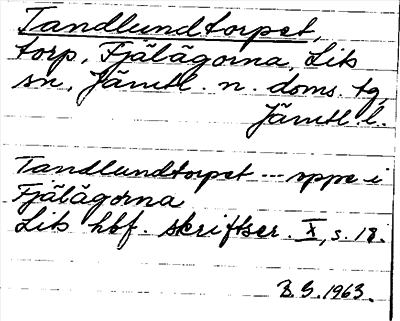 Tandlundtorpet,
torp, Fjälägorna, Lits
sn, Jämtl. n. doms. tg,
Jämtl. l.
Tandlundtorpet --- uppe i
Fjälägorna
Lits hbf. skriftser. X, s. 18.
B. G. 1963.